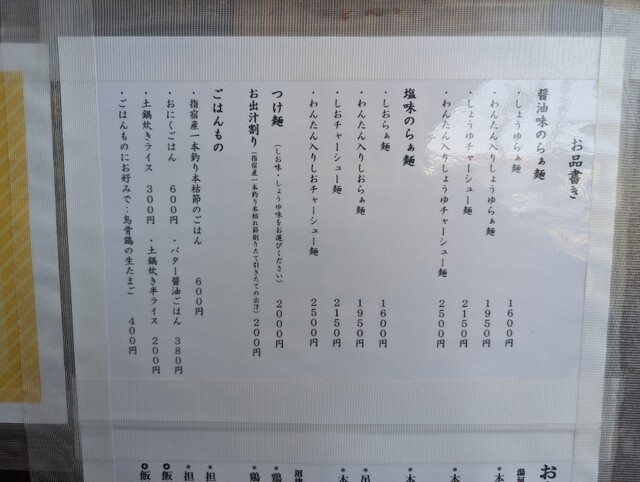 お品書き
醤油味のらぁ麺
・しょうゆらぁ麺 1600円
・わんたん入りしょうゆらぁ麺 1950円
・しょうゆチャーシュー麺 2150円
・わんたん入りしょうゆチャーシュー麺 2500円
塩味のらぁ麺
・しおらぁ麺 1600円
・わんたん入りしおらぁ麺 1950円
・しおチャーシュー麺 2150円
・わんたん入りしおチャーシュー麺 2500円
つけ麺 (しお味・しょうゆ味をお選びください) 2000円
お出汁割り (指宿産一本釣り本枯れ節削りたて引きたての出汁) 200円
ごはんもの
・指宿産一本釣り本枯節のごはん 600円
・おにくごはん 600円 ・バター醤油ごはん 380円
・土鍋炊きライス 300円 ・土鍋炊き半ライス 200円
・ごはんものにお好みで:烏骨鶏の生たまご 400円
お